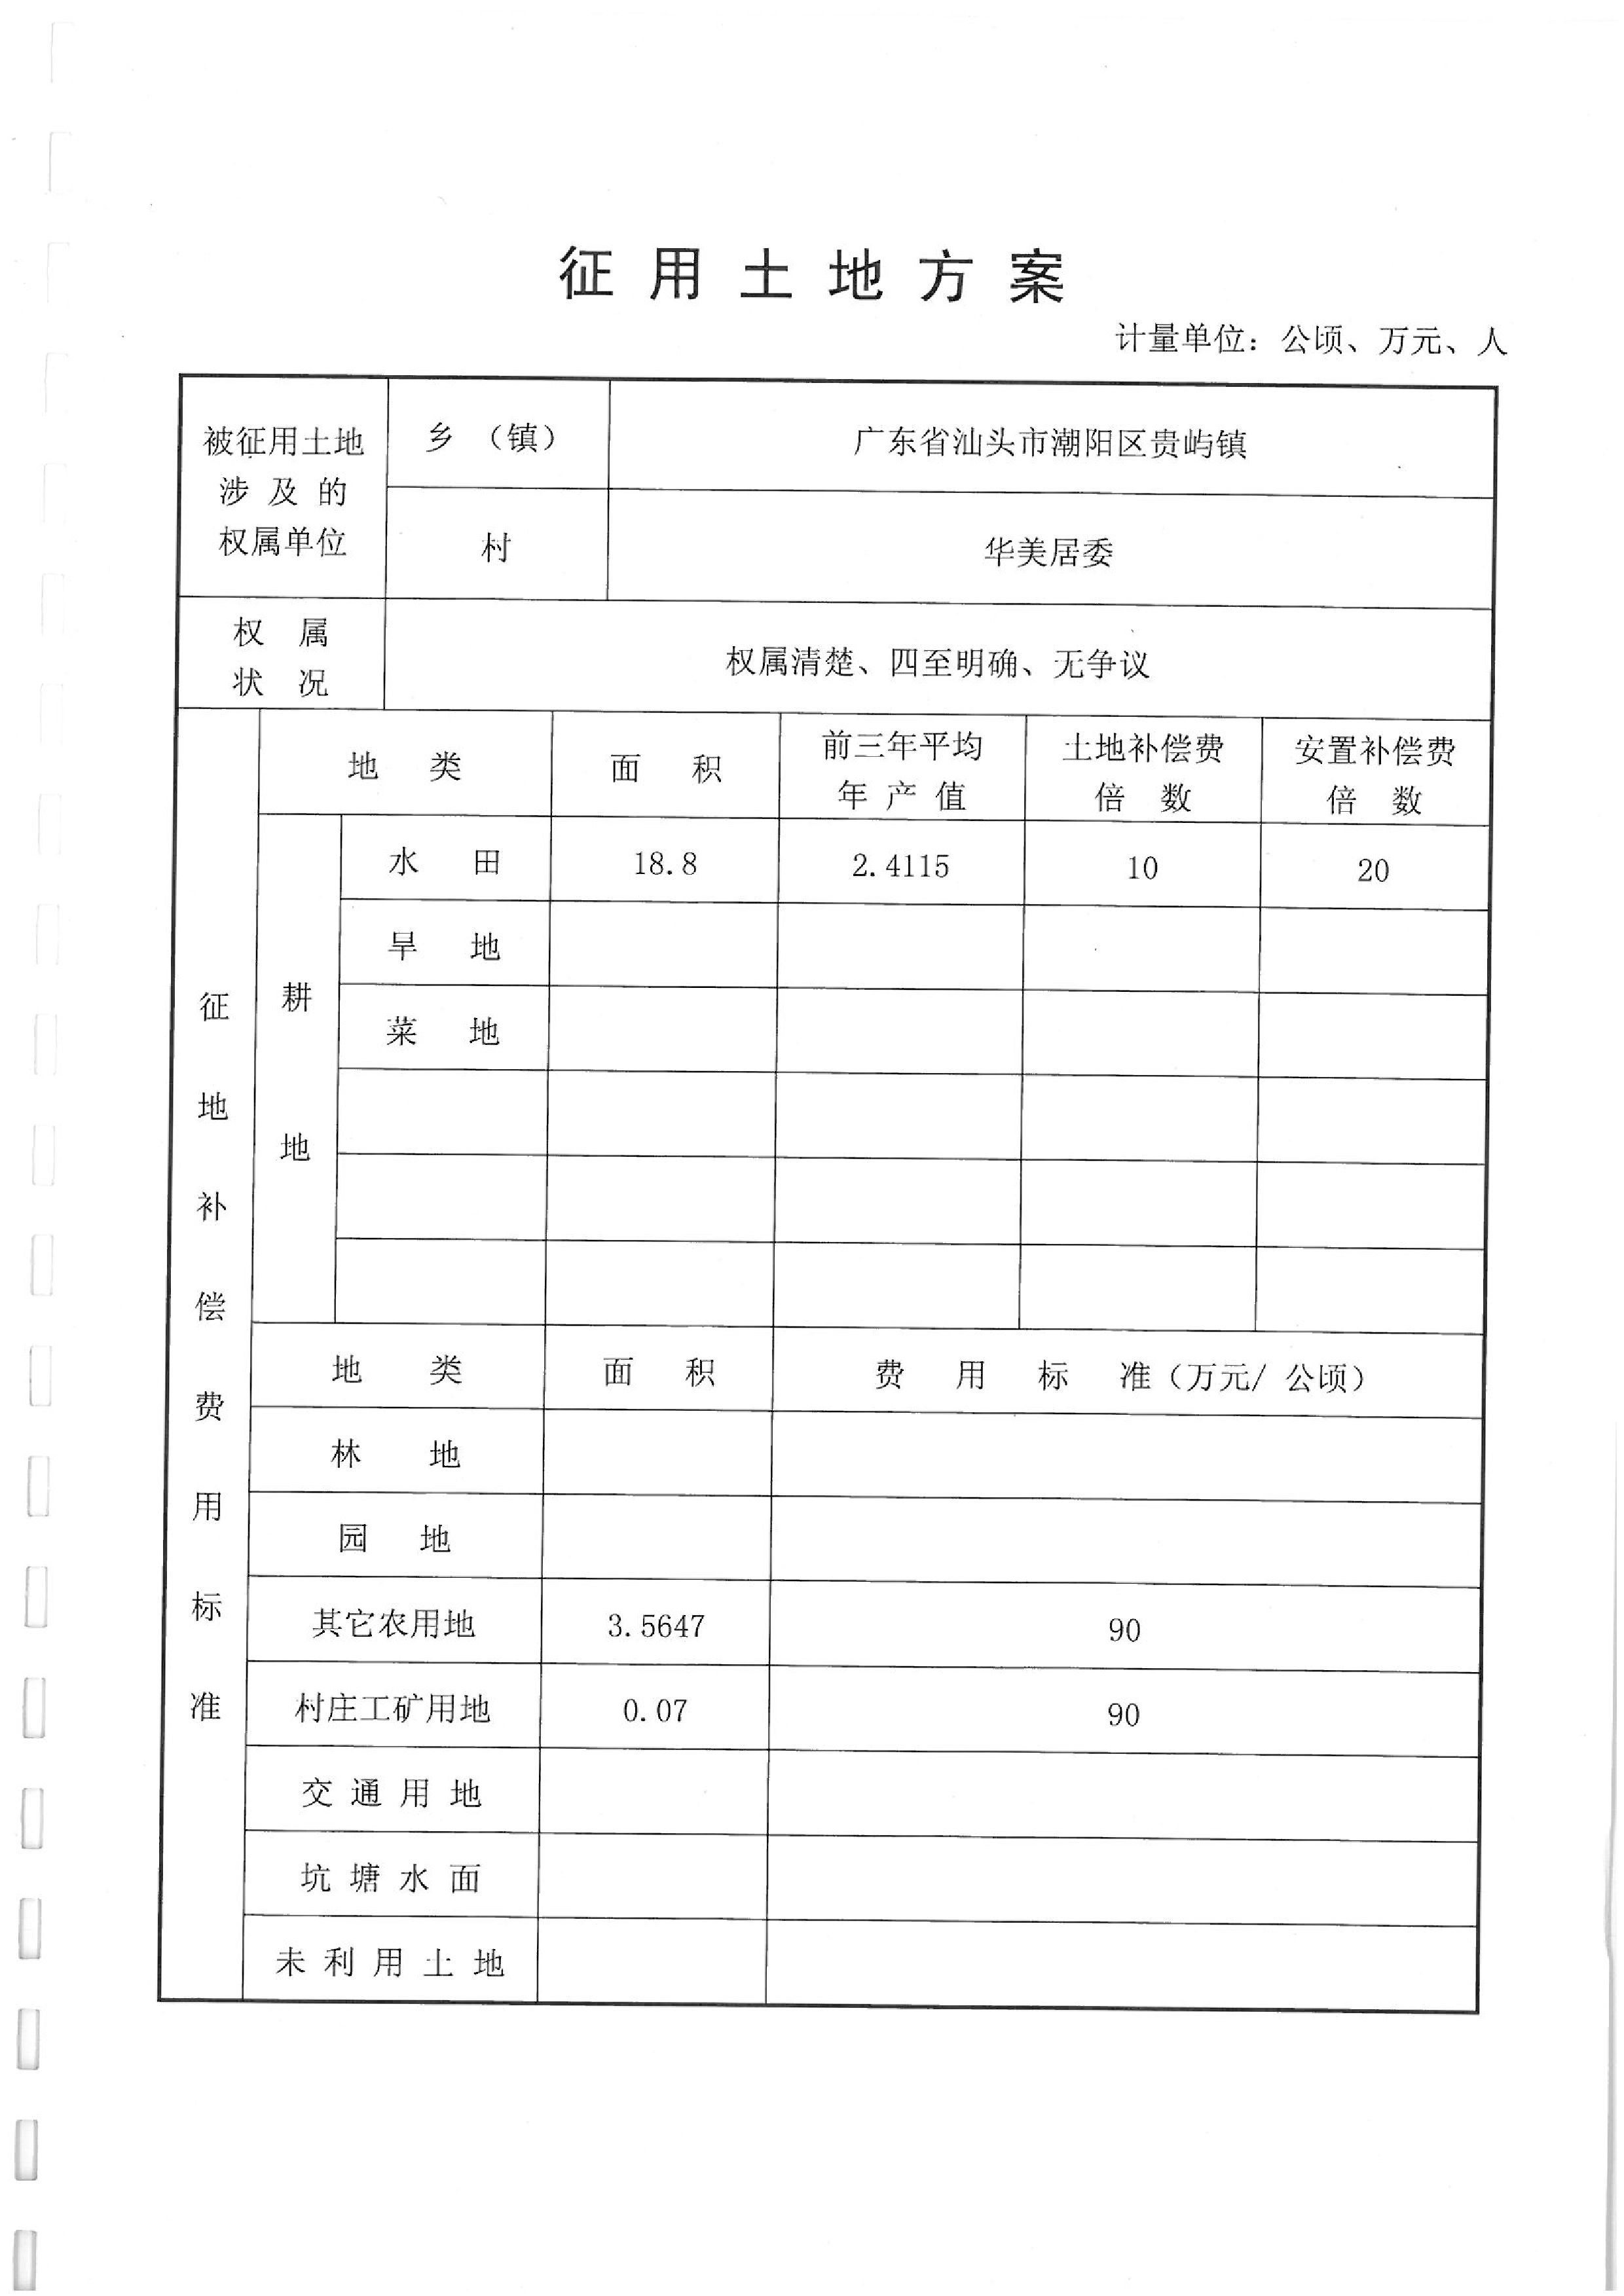 征用土地方案
计量单位：公顷、万元、人
被征用土地
涉及的
权属单位
乡（镇）
广东省汕头市潮阳区贵屿镇
村
华美居委
权属
状况
权属清楚、四至明确、无争议
征地补偿费用标准
地类
面积
前三年平均
年产值
土地补偿费
倍数
安置补偿费
倍数
耕地
水田
18.8
2.4115
10
20
旱地
菜地
地类
面积
费用标准（万元/ 公顷）
林地
园地
其它农用地
3.5647
90
村庄工矿用地
0.07
90
交通用地
坑塘水面
未利用土地